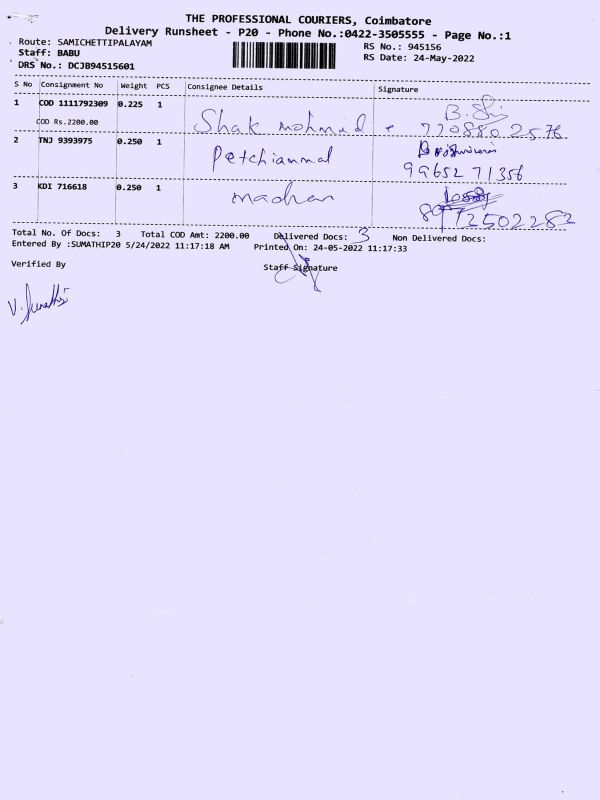 THE PROFESSIONAL COURIERS, Coimbatore
Delivery Runsheet - P20 - Phone No.:0422-3505555 - Page No.:1
Route: SAMICHETTIPALAYAM
RS No.: 945156
Staff: BABU
RS Date: 24-May-2022
DRS No.: DCJB94515601
S No Consignment No Weight PCS Consignee Details Signature
1 COD 1111792309 0.225 1
COD Rs.2200.00 Shak mohmad 720880 2576
2 TNJ 9393975 0.250 1
Petchiammal 99652 71356
3 KDI 716618 0.250 1
madhan
Total No. Of Docs: 3 Total COD Amt: 2200.00 Delivered Docs: 3 Non Delivered Docs:
Entered By :SUMATHIP20 5/24/2022 11:17:18 AM Printed On: 24-05-2022 11:17:33
Verified By Staff Signature